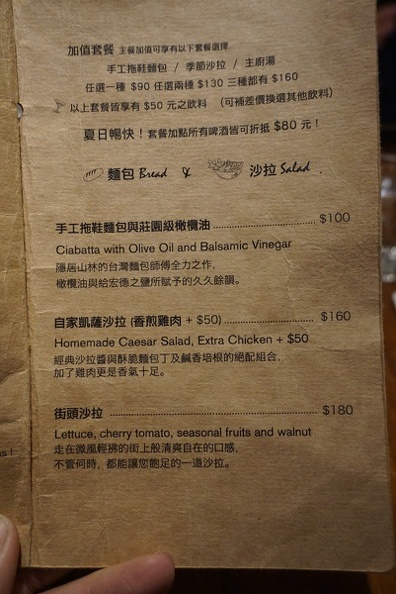 加值套餐 主餐加值可享有以下套餐選擇
手工拖鞋麵包 / 季節沙拉 / 主廚湯
任選一種 $90 任選兩種 $130 三種都有 $160
以上套餐皆享有 $50 元之飲料 (可補差價換選其他飲料)
夏日暢快！套餐加點所有啤酒皆可折抵 $80 元！
麵包 Bread & 沙拉 Salad .
手工拖鞋麵包與莊園級橄欖油 $100
Ciabatta with Olive Oil and Balsamic Vinegar
隱居山林的台灣麵包師傅全力之作，
橄欖油與給宏德之鹽所賦予的久久餘韻。
自家凱薩沙拉 (香煎雞肉 + $50) $160
Homemade Caesar Salad, Extra Chicken + $50
經典沙拉醬與酥脆麵包丁及鹹香培根的絕配組合，
加了雞肉更是香氣十足。
街頭沙拉 $180
Lettuce, cherry tomato, seasonal fruits and walnut
走在微風輕拂的街上般清爽自在的口感，
不管何時，都能讓您飽足的一道沙拉。